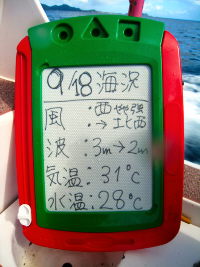 9/18 海況
風:西 やや強
:→ 北西
波:3m→2m
気温:31℃
水温:28℃